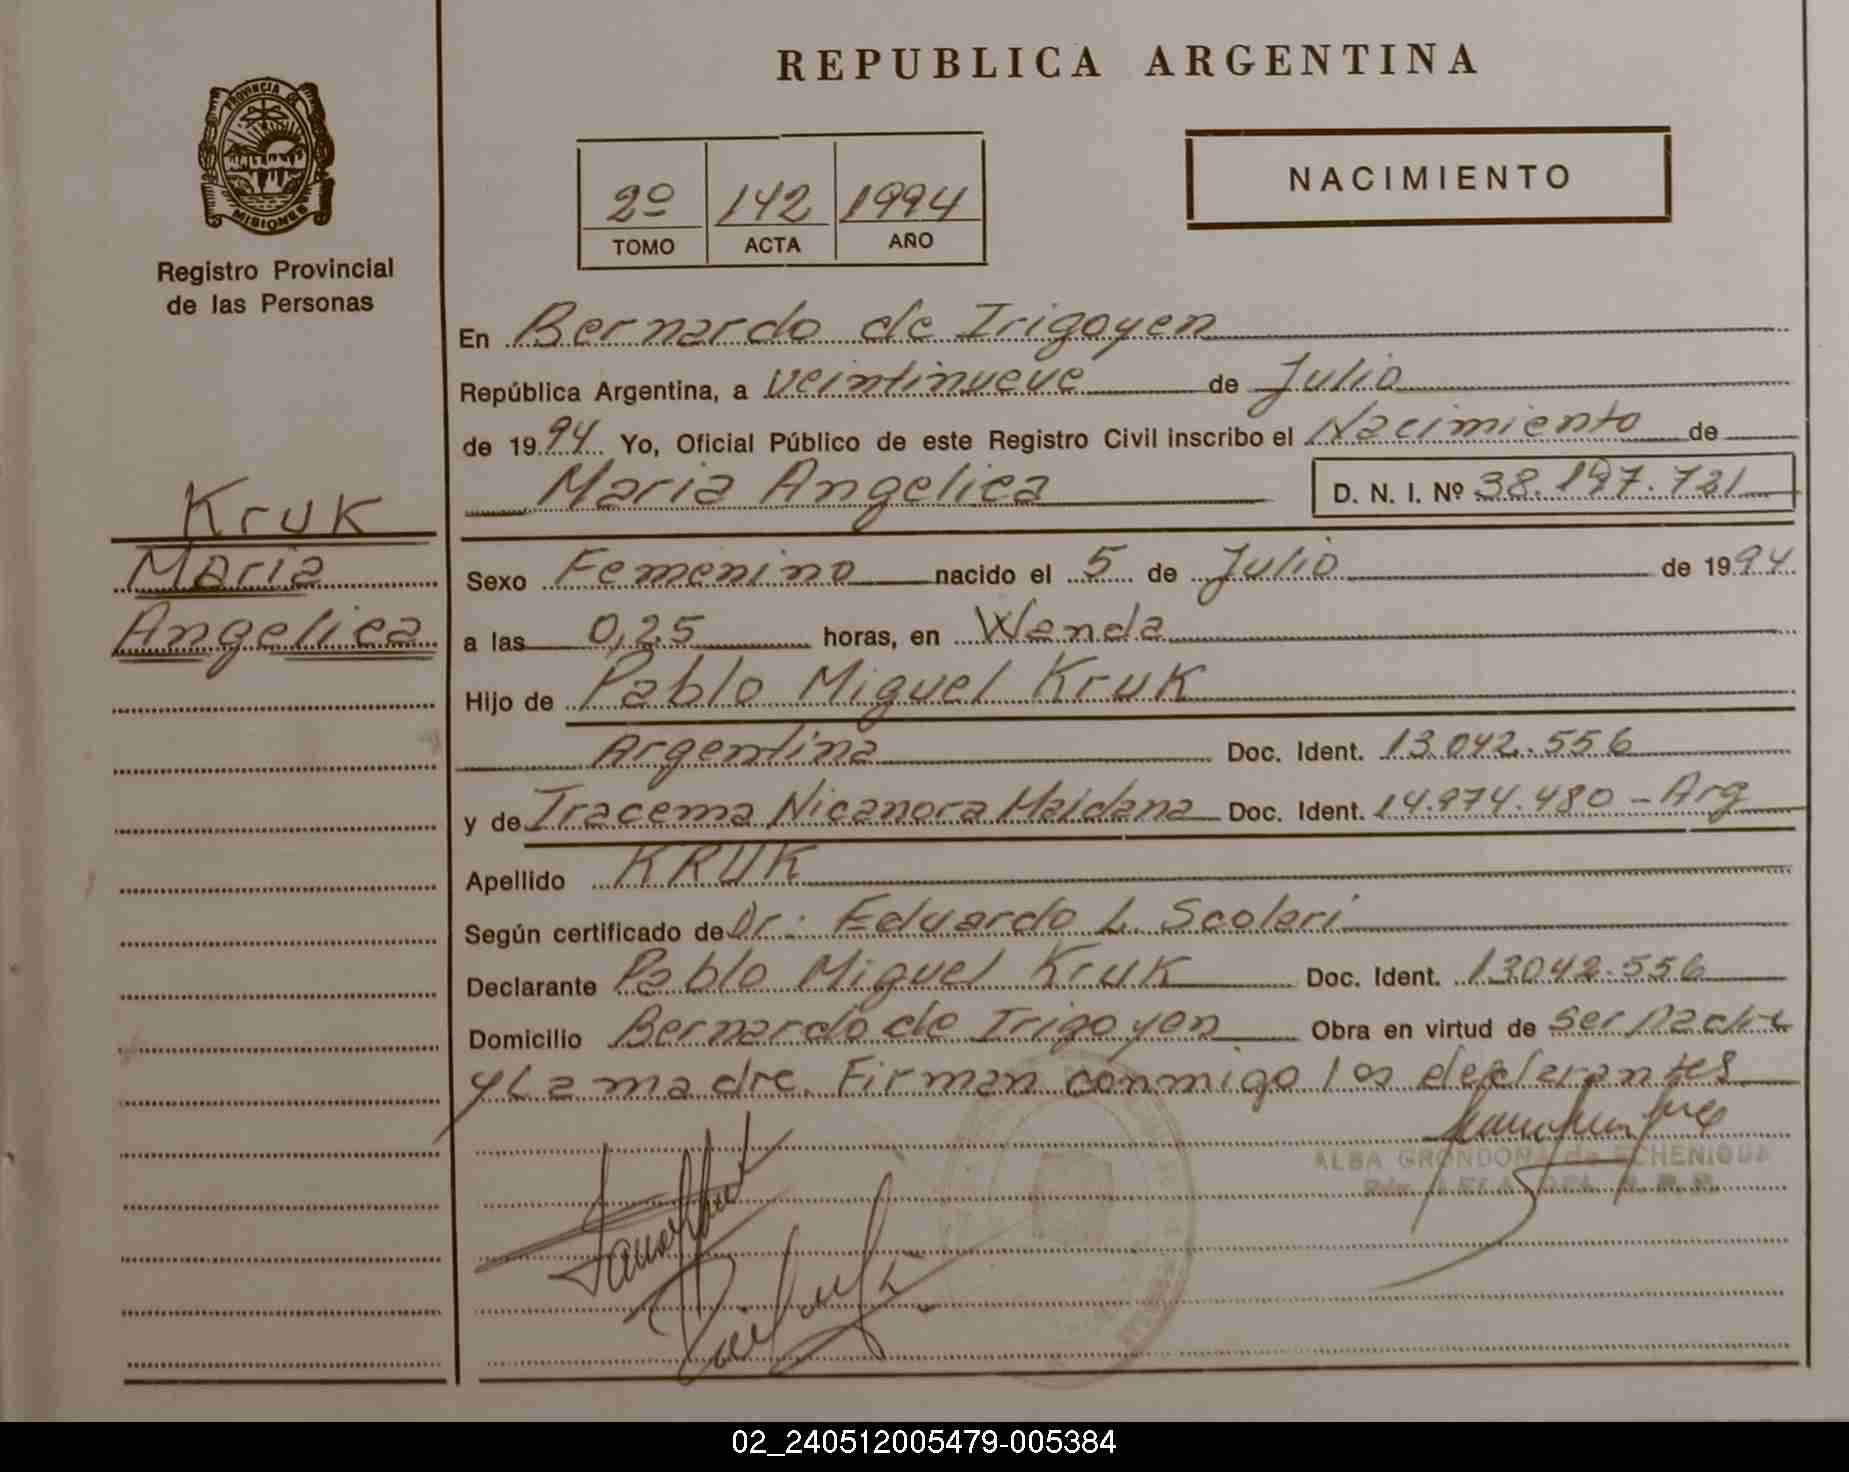 REPUBLICA ARGENTINA
PROVINCIA DE
MISIONES
Registro Provincial
de las Personas
2º 142 1994
TOMO ACTA AÑO
NACIMIENTO
Kruk
Maria
Angelica
En Bernardo de Irigoyen
República Argentina, a veintinueve de Julio
de 1994 Yo, Oficial Público de este Registro Civil inscribo el Nacimiento de
Maria Angelica D. N. I. Nº 38.197.721
Sexo Femenino nacido el 5 de Julio de 1994
a las 0,25 horas, en Wanda
Hijo de Pablo Miguel Kruk
Argentina Doc. Ident. 13.042.556
y de Iracema Nicanora Maidana Doc. Ident. 14.974.480 - Arg
Apellido KRUK
Según certificado de Dr: Eduardo L. Scolari
Declarante Pablo Miguel Kruk Doc. Ident. 13042.556
Domicilio Bernardo de Irigoyen Obra en virtud de ser Padre
y La madre. Firman conmigo los declarantes
ALBA GRONDONA de ECHENIQUE
02_240512005479-005384